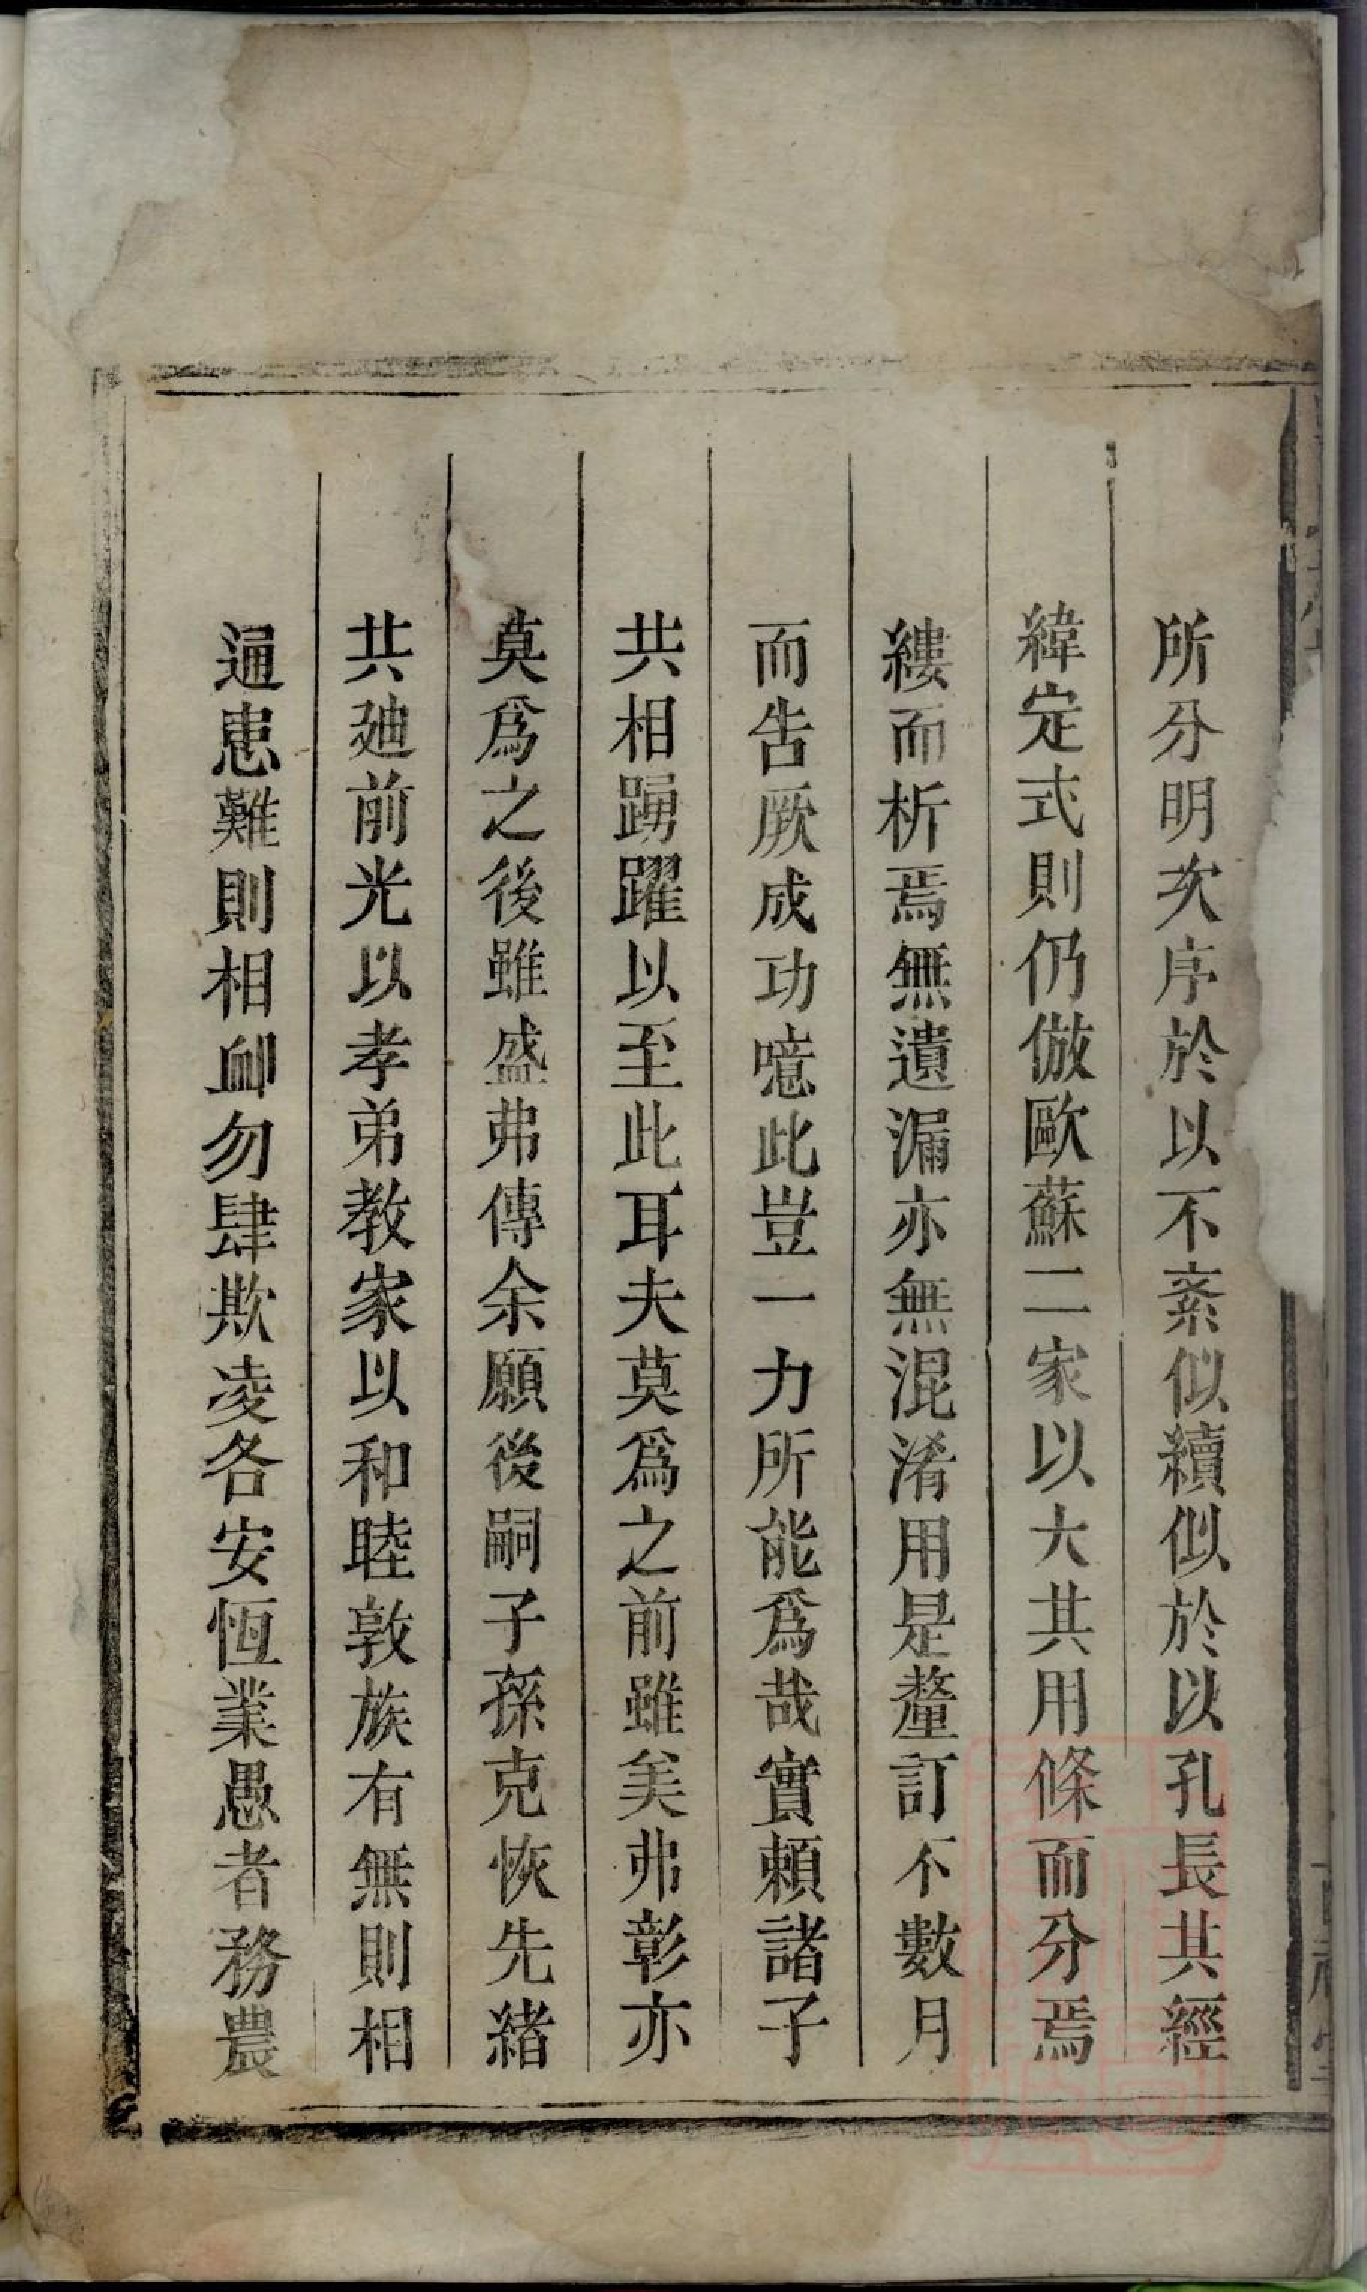 所分明次序於以不紊似續似於以孔長其經
緯定式則仍倣歐蘇二家以大其用條而分焉
縷而析焉無遺漏亦無混淆用是釐訂不數月
而告厥成功噫此豈一力所能爲哉實賴諸子
共相踴躍以至此耳夫莫爲之前雖美弗彰亦
莫爲之後雖盛弗傳余願後嗣子孫克恢先緒
共廸前光以孝弟教家以和睦敦族有無則相
通患難則相卹勿肆欺凌各安恆業愚者務農